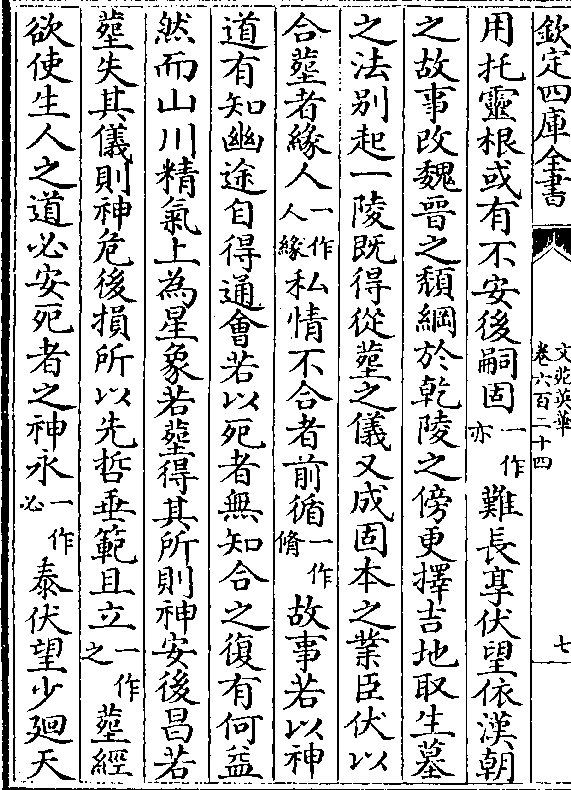 欽定四庫全書
文苑英華
卷六百二十四
七
用托靈根或有不安後嗣固一作亦難長享伏望依漢朝
之故事改魏晉之頹綱於乾陵之傍更擇吉地取生墓
之法别起一陵既得從塟之儀又成固本之業臣伏以
合塟者緣人一作人緣私情不合者前循一作脩故事若以神
道有知幽途自得通會若以死者無知合之復有何益
然而山川精氣上為星象若塟得其所則神安後昌若
塟失其儀則神危後損所以先哲垂範且立一作之塟經
欲使生人之道必安死者之神永一作必泰伏望少廻天